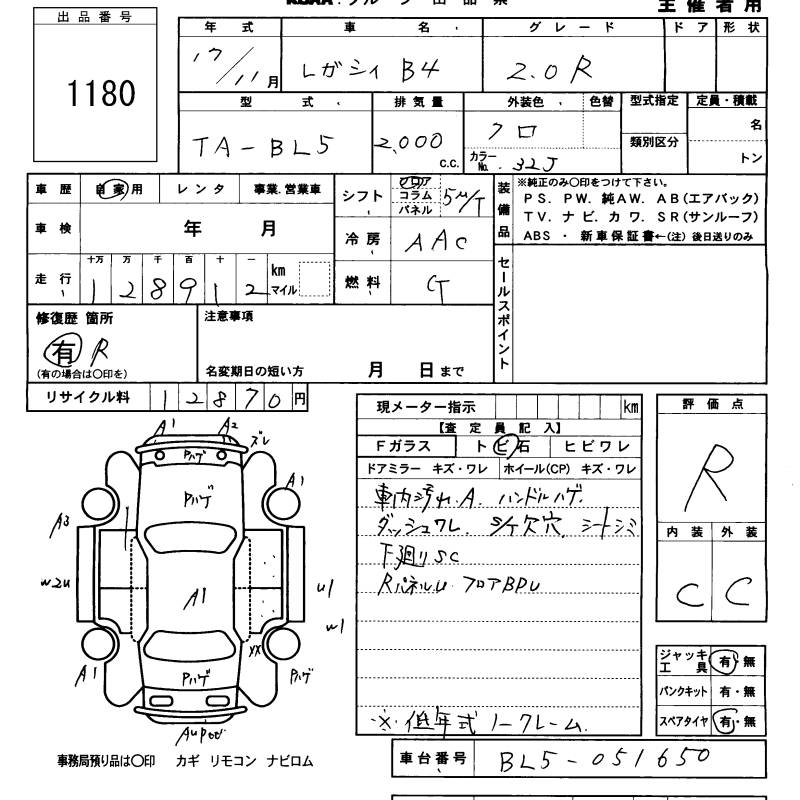 主催者用
出品番号
1180
年式 車名 グレード ドア 形状
17/11月 レガシィ B4 2.0R
型式 排気量 外装色 色替 型式指定 定員・積載
TA-BL5 2,000 c.c. クロ 類別区分 名
カラーNo. 32J トン
車歴 自家用 レンタ 事業.営業車 シフト フロア コラム パネル 5M/T
装備品 ※純正のみ○印をつけて下さい。
PS. PW. 純AW. AB(エアバック)
TV. ナビ. カワ. SR(サンルーフ)
ABS ・ 新車保証書←(注) 後日送りのみ
車検 年 月 冷房 AAC
走行 十万 万 千 百 十 一 km マイル 燃料
128912
セールスポイント
修復歴 箇所 注意事項
有 R
(有の場合は○印を) 名変期日の短い方 月 日まで
リサイクル料 12870円
現メーター指示 km
【査定員記入】
Fガラス トビ石 ヒビワレ
ドアミラー キズ・ワレ ホイール(CP) キズ・ワレ
車内汚れ.A. ハンドルハゲ.
ダッシュワレ. 欠穴. シートシミ
下廻りSC
RパネルU フロアBPU
※.低年式 ノークレーム.
評価点
R
内装 外装
C C
ジャッキ 工具 有・無
パンクキット 有・無
スペアタイヤ 有・無
A1 A2 ズレ
Pハゲ
Pハゲ
A1
A3
W2U A1 U1
W1
XX
A1 Pハゲ Pハゲ
事務局預り品は○印 カギ リモコン ナビロム
車台番号 BL5-051650